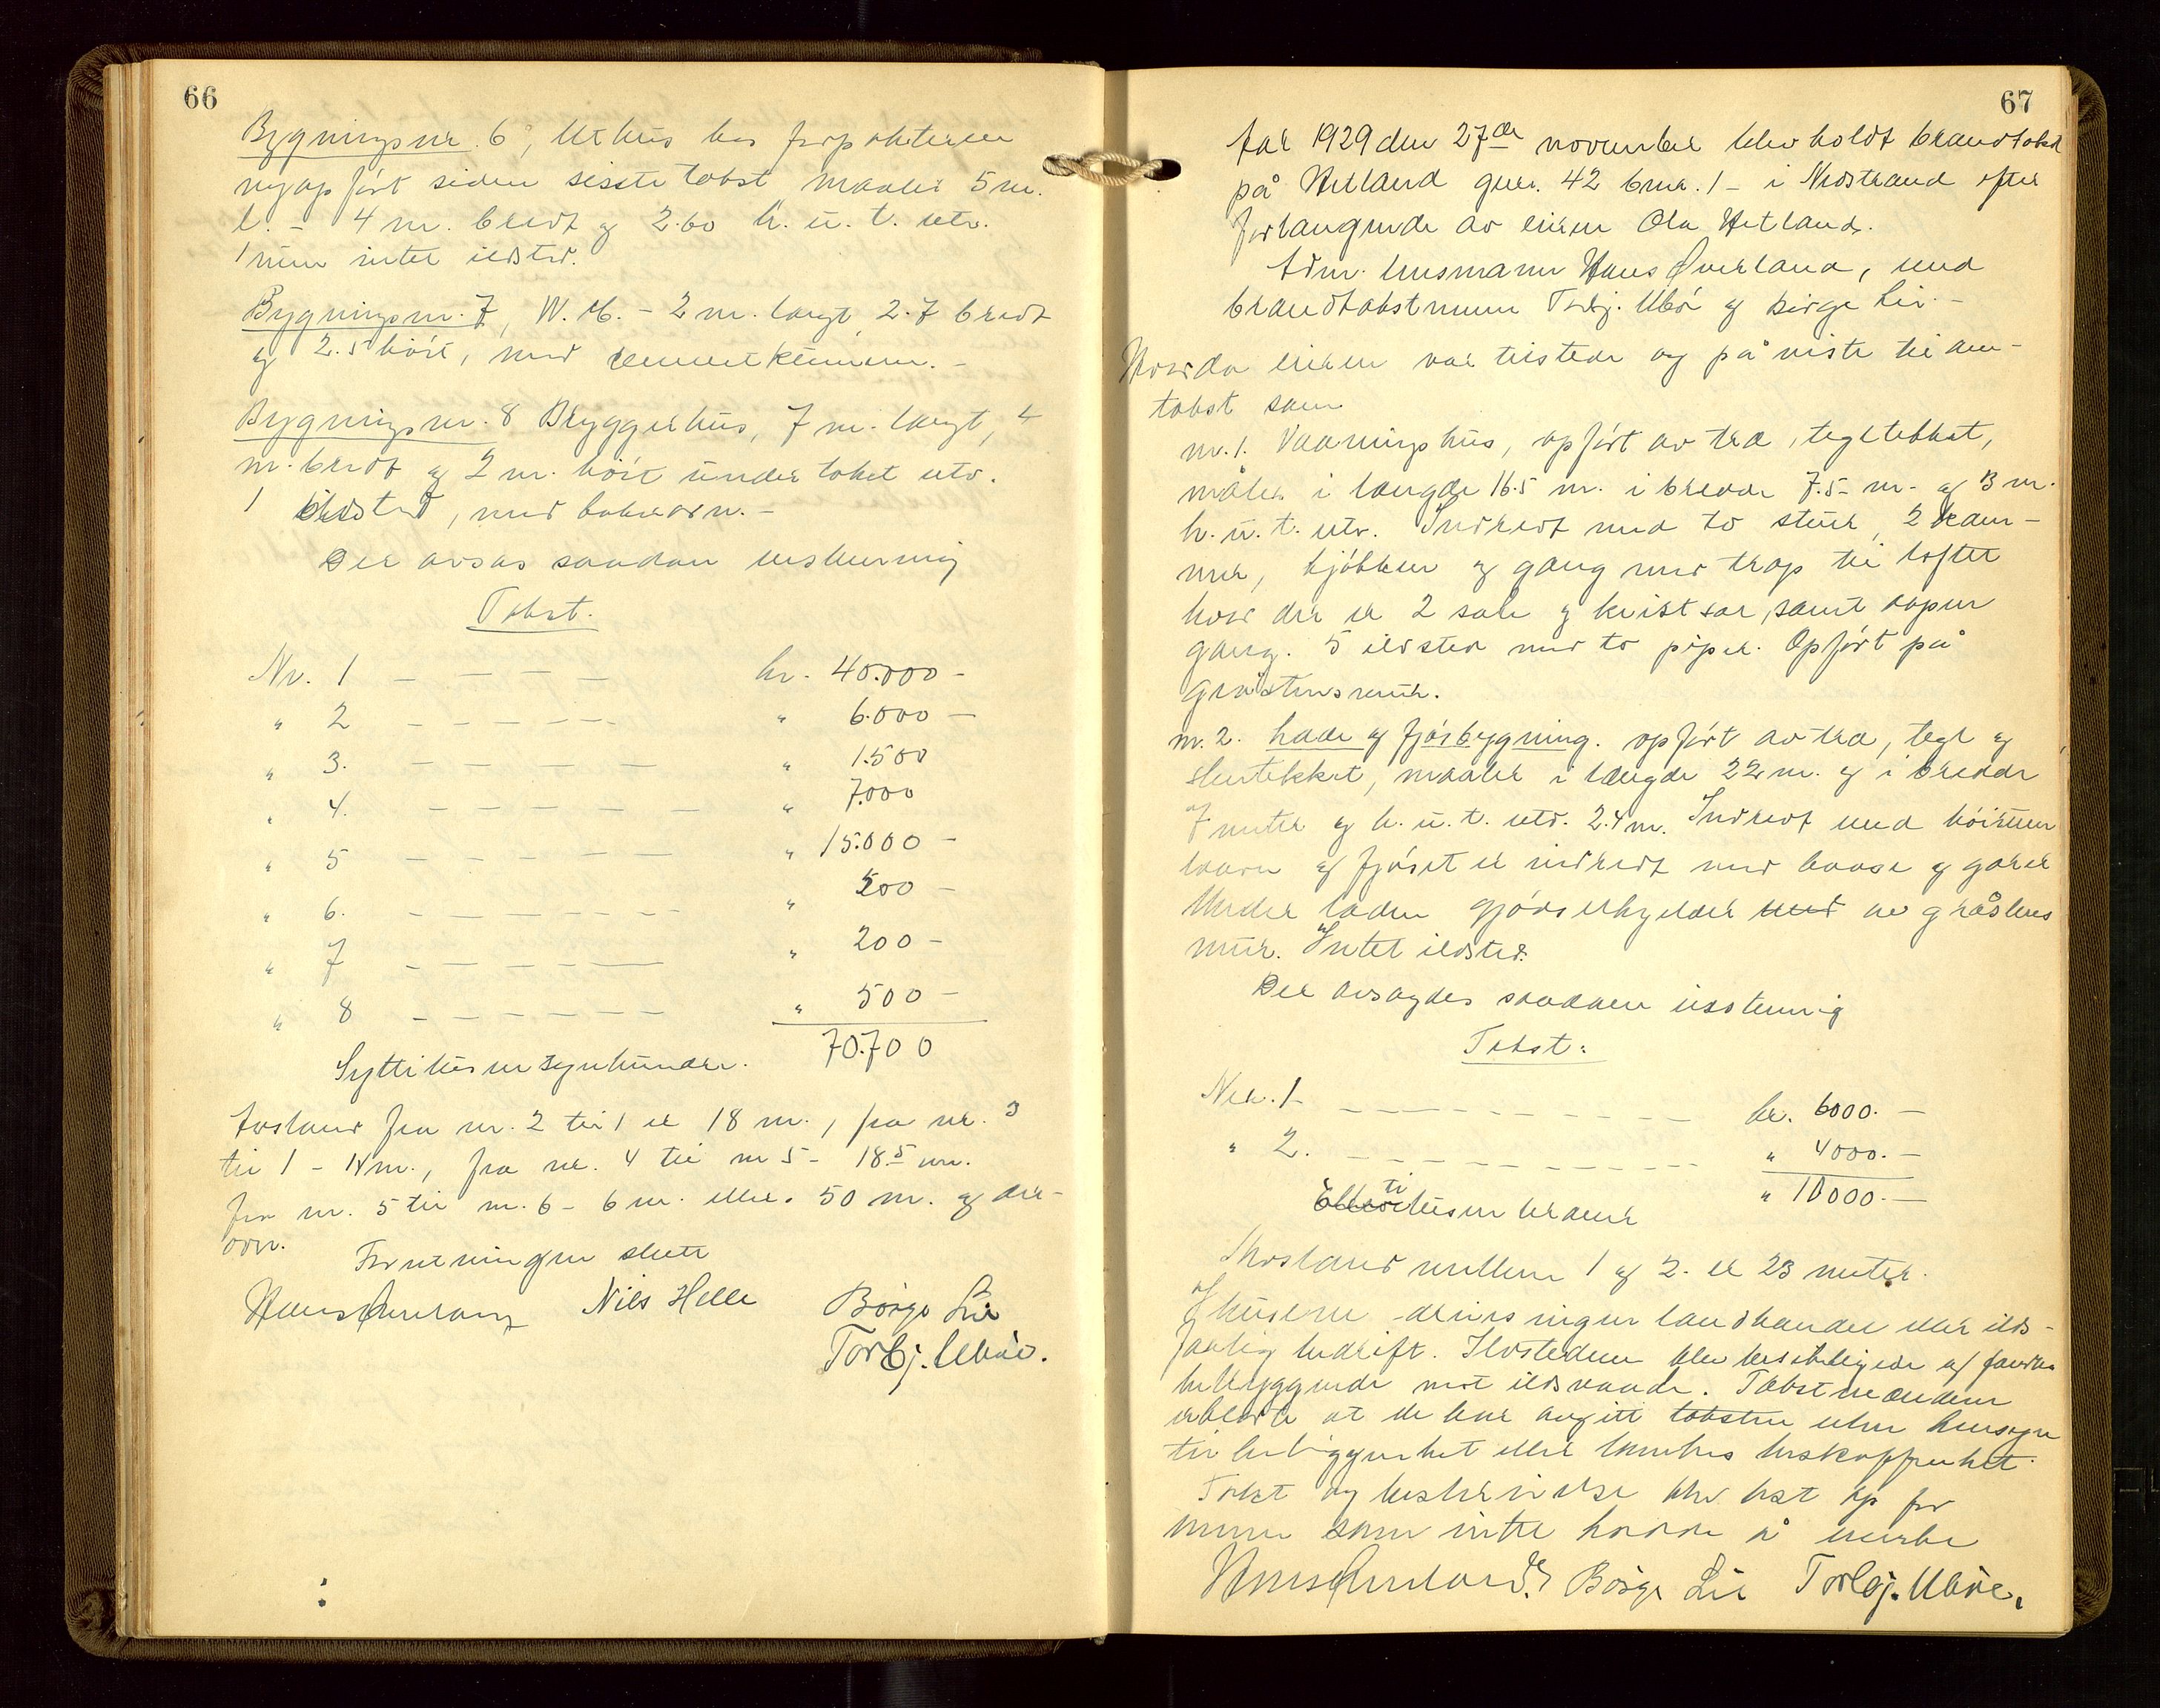 66
Bygningsnr. 6, Uthus hos forpakteren
nyopført siden sisste takst maaler 5 m.
l. - 4 m. bredt og 2.60 h. u. t. utv.
intet ildsted.
Bygningsnr. 7, W. C. - 2 m. langt 2.7 bredt
og 2.5 høit, med cementkummer. -
Bygningsnr. 8 Bryggerhus, 7 m. langt, 4
m. bredt og 2 m. høit under taket utv.
1 ildsted, med bakerovn. -
Der avsas saadan
Takst.
Nr. 1 - - - - - kr. 40.000 -
" 2 - - - - - " 6.000 -
" 3. - - - - - " 1.500
" 4. - - - - - " 7.000
" 5 - - - - - " 15.000 -
" 6. - - - - - " 500 -
" 7 - - - - - " 200 -
" 8 - - - - - " 500 -
70.700
Syttitusensyvhundre.
Avstand fra nr. 2 til 1 er 18 m., fra nr. 3
til 1 - 14 m., fra nr. 4 til nr 5 - 18.5 m.
fra nr. 5 til nr. 6 - 6 m. ellers 50 m. og der-
over.
Forretningen slutt
Hans Øverland Nils Helle Børge Lie
Torbj. Ubøe.
67
Aar 1929 den 27de november blev holdt brandtakst
på Hetland gnr. 42 bnr. 1 - i Nedstrand efter
forlangende av eieren Ola Hetland.
Adm. lensmann Hans Øverland, med
brandtakstmenn Torbj. Ubøe og Børge Lie. -
Hvorda eieren var tilstede og på viste til den-
takst som
nr. 1. Vaaningshus, opført av træ, tegltekket,
måler i længde 16.5 m. i bredde 7.5 m. og 3 m.
h. u. t. utv. Indredt med to stuer, 2 kam-
mer, kjøkken og gang med trap til loftet
hvor der er 2 sale og kvistsal, samt aapen
gang. 5 ildsted med to piper. Opført på
gråstensmur.
nr. 2. Lade og fjøsbygning. opført av træ, tegl og
stentekket, maaler i længde 22 m. og i bredde
7 meter og h. u. t. utv. 2.4 m. Indredt med høirum
laave og fjøset er indredt med baase og garer
Under laden gjødselkjelder med av gråstens
mur. Intet ildsted.
Der avsagdes saadan
Takst:
Nr. 1 - - - - - kr. 6000. -
" 2. - - - - - " 4000. -
" 10000. -
Elleve ti tusen kroner
Avstand mellem 1 og 2. er 23 meter.
I husene drives ingen landhandel eller ilds-
farlig bedrift. Ildstedene blev besiktigede og fandtes
betryggende mot ildsvaade. Takstmændene
erklærte at de har avgitt taksten uten hensyn
til beliggenhet eller tomtens beskaffenhet.
Takst og beskrivelse blev lest op for
menn som intet hadde å merke
Hans Øverland. Børge Lie Torbj. Ubøe.